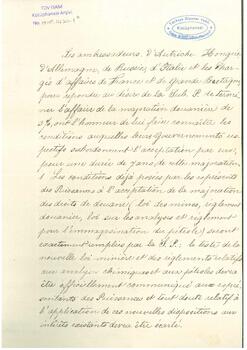 TDV İSAM
Kütüphanesi Arşivi
No
Les ambassadeurs d'Autriche Hongrie
d'Allemagne, de Russie, d'Italie et les Char-
gés d'affaires de France et de Grande Bretagne
pour répondre au désir de la Sub. P. de terminer
l'affaire de la majoration douanière de
3%, ont l'honneur de lui faire connaître les
conditions auxquelles leurs Gouvernements res-
pectifs subordonnent l'acceptation par eux,
pour une durée de 7 ans de cette majoration
1. Les conditions déjà posées par les représents
des Puissances à l'acceptation de la majoration
des droits de douane, (loi des mines, règlement
douanier, loi sur les analyses et règlement
pour l'emmagasinage du pétrole) seront
exactement remplies par la S. P.: le texte de la
nouvelle loi minière et des règlements relatifs
aux analyses chimiques et aux pétroles devra
être officiellement communiqué aux repré-
sentants des Puissances et tout doute relatif à
l'application de ces nouvelles dispositions aux
intérêts existants devra être écarté.